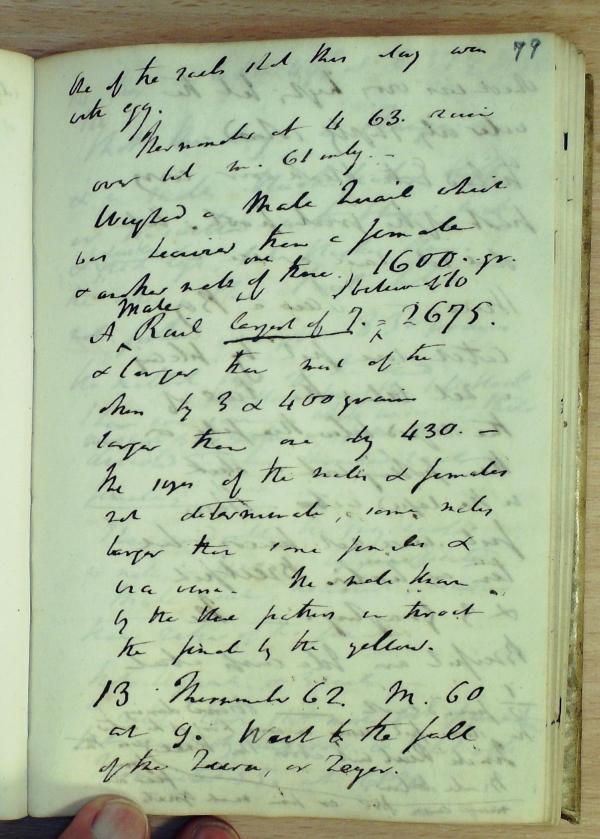 79
One of the rails shot this day was
with egg.
Thermometer at 4 63. river
over hut m. 61 only. -
Weighed a Male Quail which
was heavier than a female
& another male of three. 1600. gr.
one
Male below
A Rail largest of 7. = 2675.
& larger than most of the
others by 3 & 400 grains
larger than one by 430. -
The sizes of the males & females
not determinate, some males
larger than some females &
vice versa. The male known
by the blue feathers in throat
the female by the yellow.
13 Thermometer 62. M. 60
at 9. Went to the fall
of the Zaera, or Zeyer.